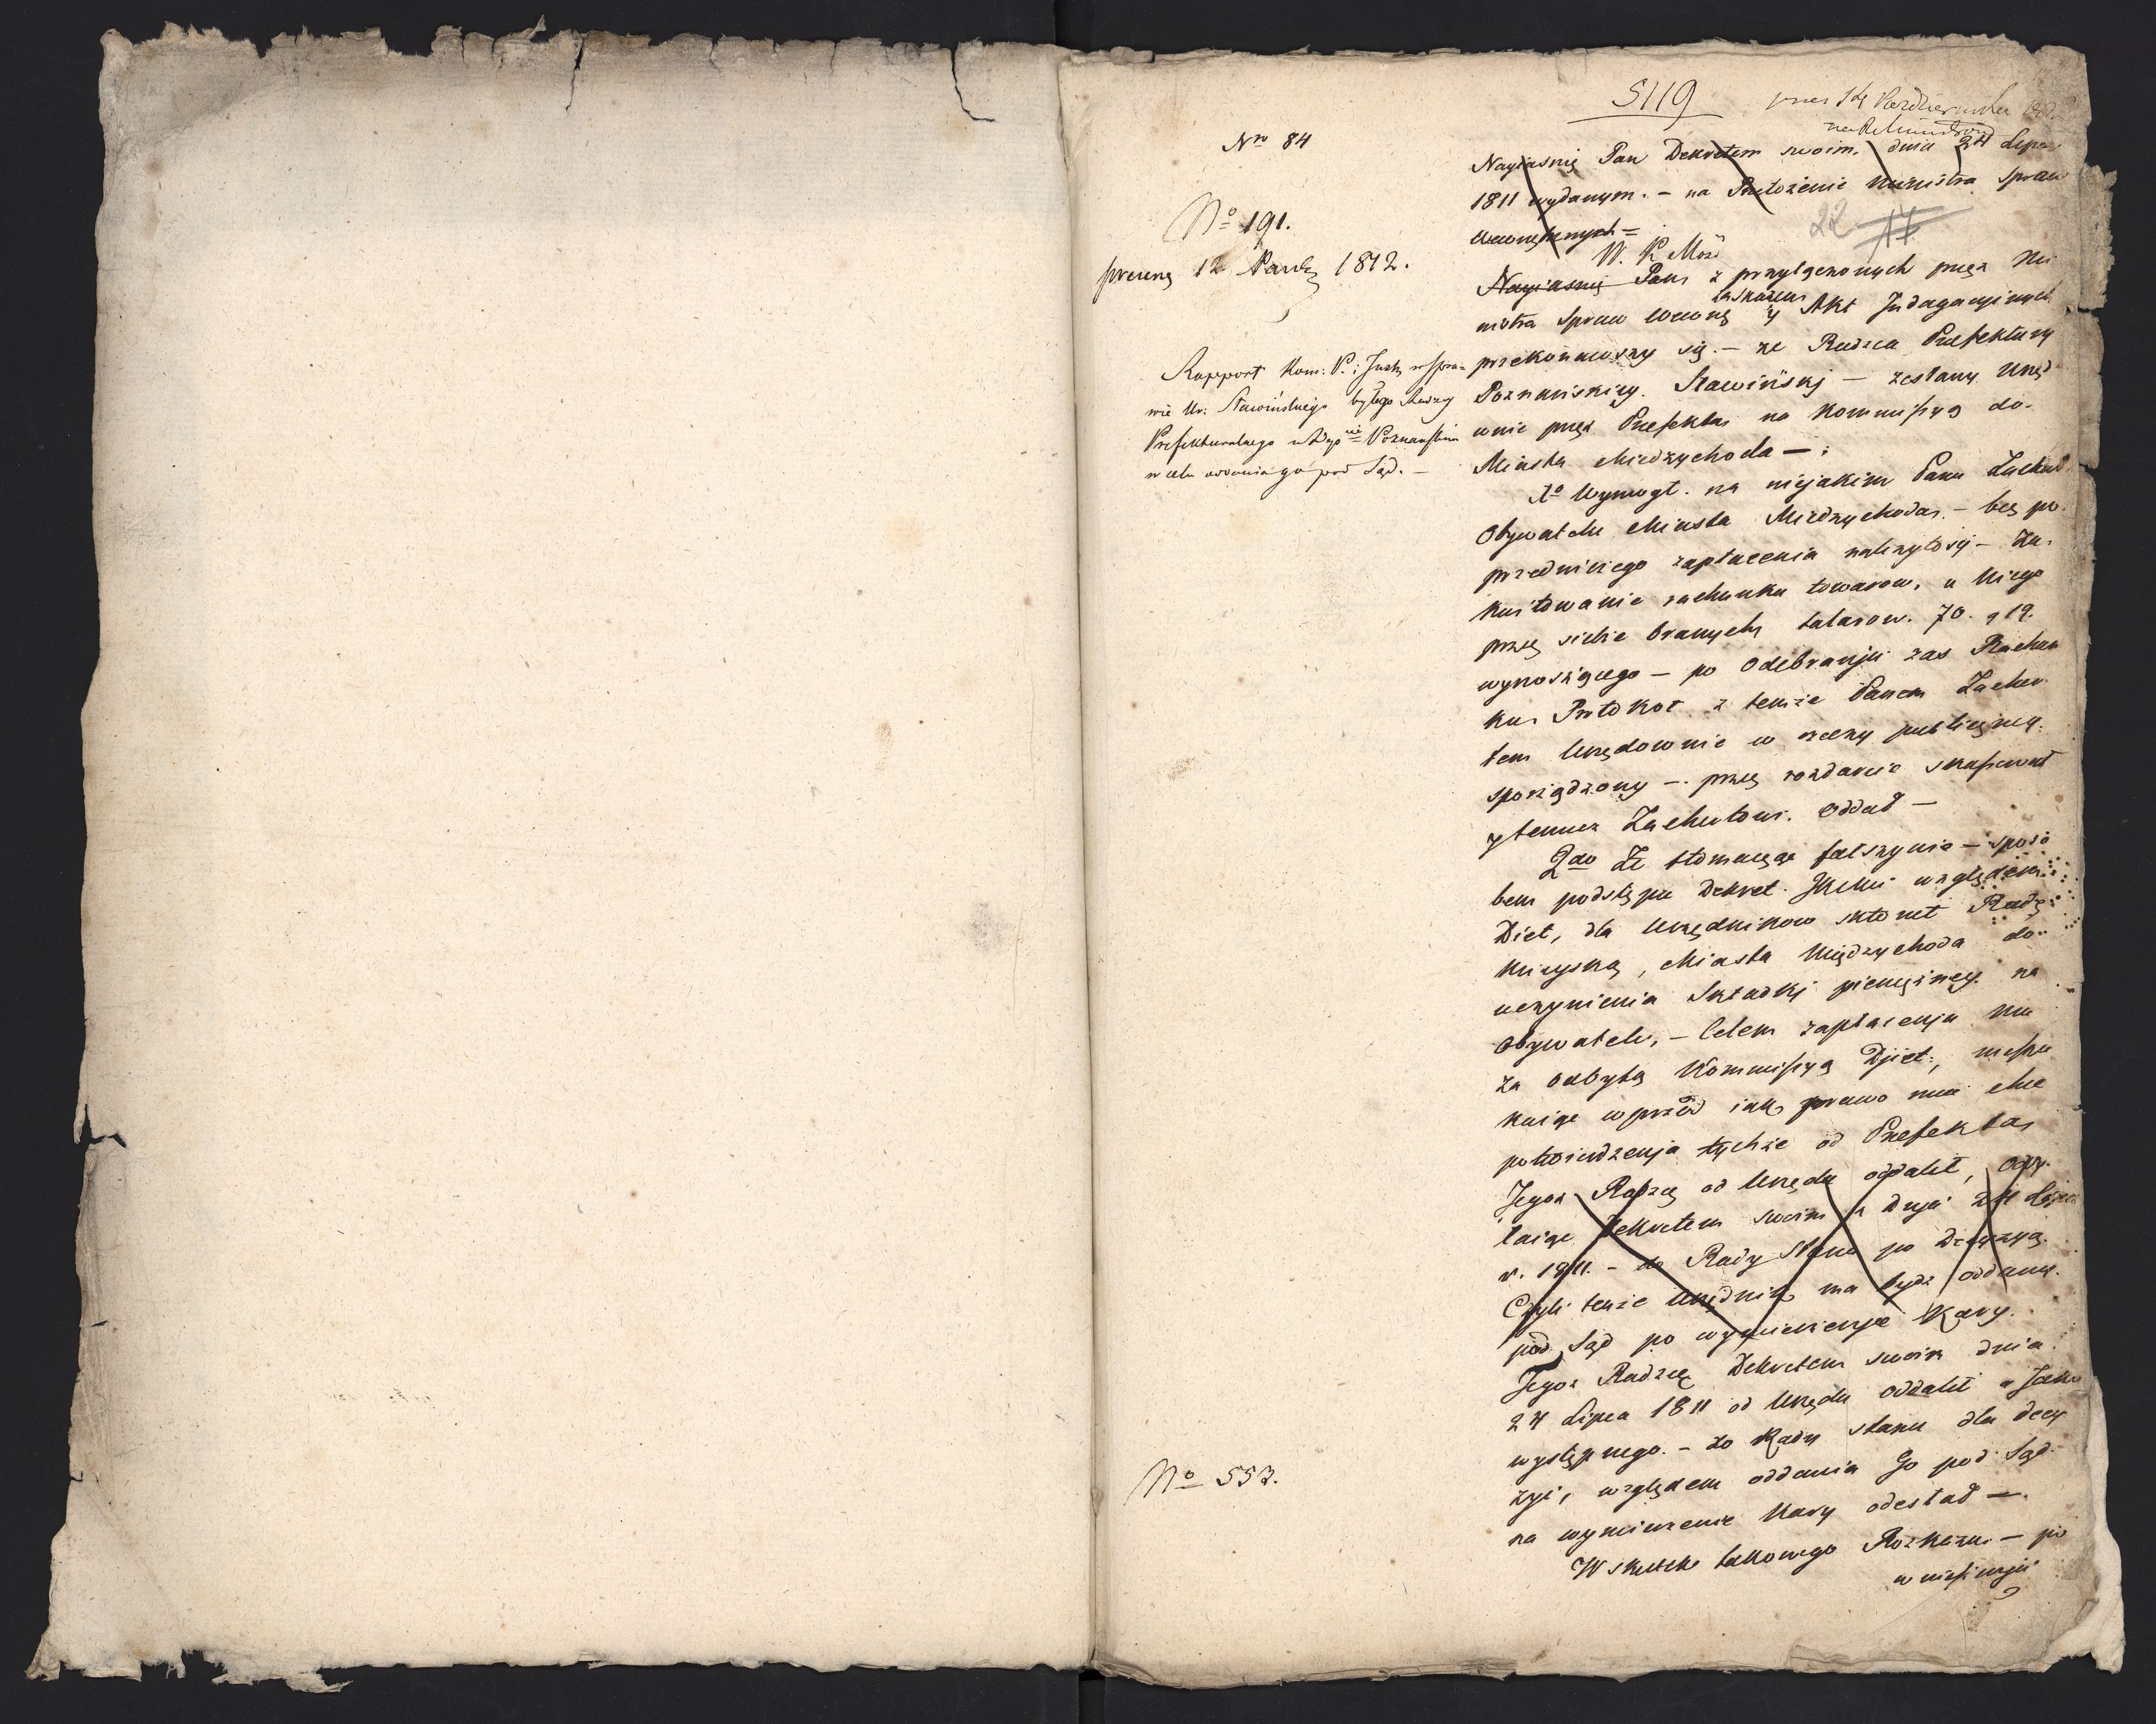 5119
pres 14 Pazdziernika
Nro 84
No 191.
prezent 12 Pazdz 1812.
Rapport Kom: P. i Inst w spra-
wie Ur. Stawińskiego byłego Radzcy
Prefekturalnego w Dep. Poznańskim
w celu oddania go pod Sąd. —
No 553.
Nayiaśniey Pan Dekretem swoim dnia 24 Lipca
1811 wydanym. — na Przełożenie Ministra Spraw
Wewnętrznych =
W. K. Mość
Nayiaśniey Pan z przyłączonych przez Mi
nistra Spraw Wewnę y Akt Indagacyinych
przekonawszy się. — że Radzca Prefektury
Poznańskiey. Stawińskj — zesłany Urzęd
ownie przez Prefekta na Kommissyą do
Miasta Miedzychoda — :
1o Wymogł. na niejakim Panu Zachert
Obywatelu Miasta Miedzychoda. — bez po-
przedniczego zapłacenia należytości — Za-
kwitowanie rachunku towarow, u niego
przez siebie branych talarow. 70. g 19.
wynoszącego — po Odebraniu zas Rachun
ku Protokoł z temże Panem Zacher
tem Urzędownie w rzeczy publiczney.
sporządzony — przez rozdarcie skassował
y temuż Zachertowi. oddał —
2do Że tłomacząc fałszywie — sposo
bem podstępu Dekret. JKMci względem
Diet, dla Urzędnikow skłonił Radę
Mieyską, Miasta Międzychoda do
uczynienia Składkj pieniężney. na
Obywateli, — Celem zapłacenia mu
za odbytą Kommissyą Djiet, nieszu
kaiąc wprzód iak prawo mieć chce
potwierdzenja tychże od Prefekta,
Tegoż Radzcę od Urzędu oddalił, odsy-
łaiąc Dekretem swoim z Dnja 24 Lipca
r. 1811. — do Rady Stanu po Decyzyą.
Czyli tenże Urzędnik ma bydź oddany.
pod Sąd po wymierzenje Kary.
Tegoż Radzcę Dekretem swoim dnia
24 Lipca 1811 od Urzędu oddalił a Jako
występnego. — do Rady stanu dla decy
zyi, względem oddania Go pod Sąd
na wymierzenie Kary odesłał —.
W skutek takowego Rozkazu — po
wniesieniu